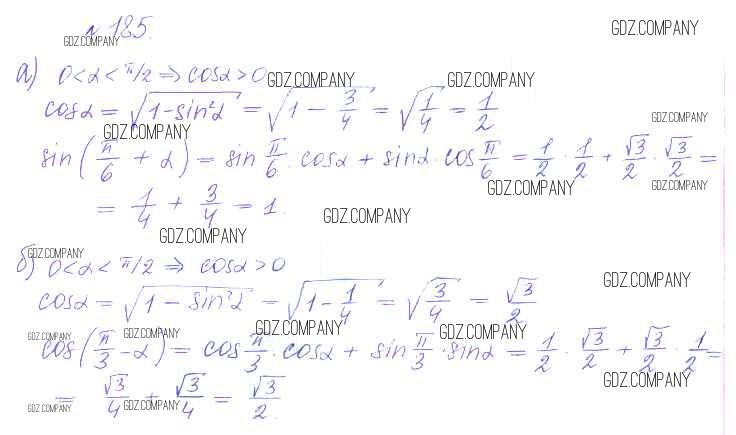 № 185.
GDZ.COMPANY GDZ.COMPANY
а) 0 < α < π/2 ⇒ cosα > 0 GDZ.COMPANY GDZ.COMPANY
cosα = √(1 - sin²α) = √(1 - 3/4) = √(1/4) = 1/2
GDZ.COMPANY GDZ.COMPANY
sin(π/6 + α) = sin π/6 · cosα + sinα · cos π/6 = 1/2 · 1/2 + √3/2 · √3/2 =
GDZ.COMPANY GDZ.COMPANY
= 1/4 + 3/4 = 1. GDZ.COMPANY
GDZ.COMPANY
GDZ.COMPANY
б) 0 < α < π/2 ⇒ cosα > 0 GDZ.COMPANY
cosα = √(1 - sin²α) = √(1 - 1/4) = √(3/4) = √3/2
GDZ.COMPANY GDZ.COMPANY GDZ.COMPANY GDZ.COMPANY
cos(π/3 - α) = cos π/3 · cosα + sin π/3 · sinα = 1/2 · √3/2 + √3/2 · 1/2 =
GDZ.COMPANY
= √3/4 + √3/4 = √3/2.
GDZ.COMPANY GDZ.COMPANY